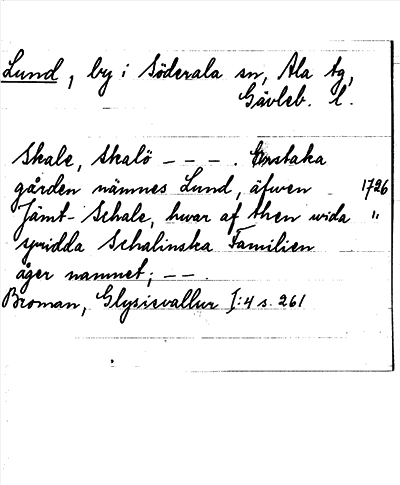 Lund, by i Söderala sn, Ala tg,
Gävleb. l.
Skale, Skalö – – – . Enstaka
gården nämnes Lund, äfwen 1726
Jämt-Schale, hwar af then wida "
spridda Schalinska Familien
äger namnet; – – .
Broman, Glysisvallur I:4 s. 261